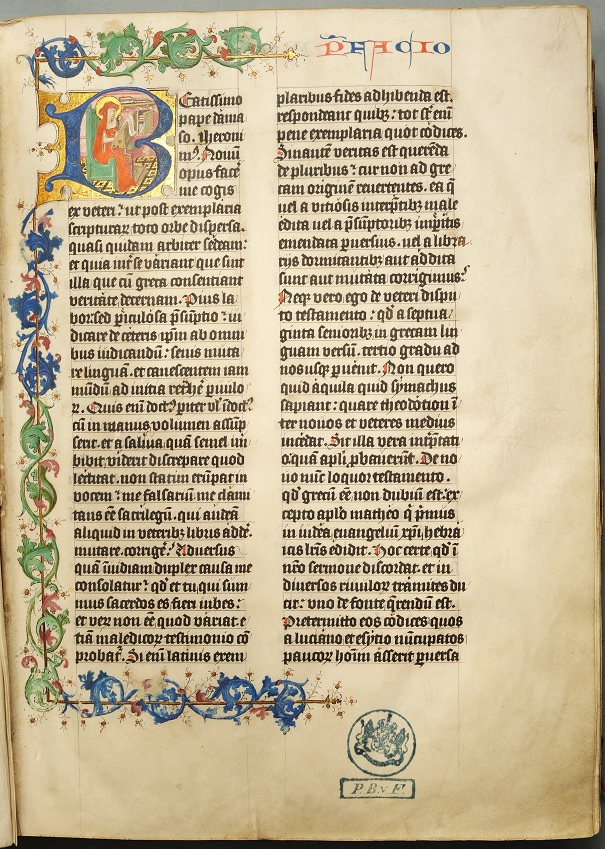 Prefacio
Beatissimo
pape dama
so. iheroni
mꝰ. Nouū
opus facẽ
me cogis
ex veteri: ut post exemplaria
scripturaꝝ toto orbe dispersa.
quasi quidam arbiter sedeam:
et quia inť se variant que sint
illa que cū greca consentiant
veritate decernam. Pius la
bor sed ꝑiculosa p̄sūptio: iu
dicare de ceteris ip̄m ab omni
bus iudicandū: senis muta
re linguam. et canescentem iam
mūdū ad initia ret̃he ꝑuulo
ꝝ. Quis enī doctꝰ ꝑiter vl̓ īdoctꝰ
cū in manus volumen assūp
serit. et a saliua quā semel im
bibit viderit discrepare quod
lectitat. non statim erūpat in
vocem: me falsariū me clami
tans eē sacrilegū. qui audeā
aliquid in veteribꝫ libris adde.
mutare. corrigẽ: Aduersus
quā inuidiam duplex causa me
consolatur: qd̓ et tu qui sum
mus sacerdos es fieri iubes:
et verū non eē quod variat. e
tiā maledicoꝝ testimonio cō
probať. Si enī latinis exem
plaribus fides adhibenda est.
respondeant quibꝫ: tot s̄t enī
pene exemplaria quot codices.
Sin autem veritas est querēda
de pluribus: cur non ad gre
cam originē reuertentes. ea q̄
uel a vitiosis interp̄tibꝫ male
edita uel a p̄sūptoribꝫ impitis
emendata ꝑuersius. uel a libra
rijs dormitantibꝫ aut addita
sunt aut mutata corrigimus:
Neqꝫ vero ego de veteri dispu
to testamento: qd̓ a septua
ginta senioribꝫ in grecam lin
guam versū. tertio gradu ad
nos usqꝫ ꝑuenit. Non quero
quid aquila quid symachus
sapiant: quare theodotion ī
ter nouos et veteres medius
incedat. Sit illa vera inťp̄tati
o: quā apl̓i ꝓbauerūt. De no
uo nūc loquor testamento.
qd̓ grecū eē non dubiū est. ex
cepto apl̓o matheo q̇ p̓mus
in iudea euangeliū xp̄i hebra
icis lr̄is edidit. Hoc certe qd̓ ī
nr̄o sermone discordat. et in
diuersos riuuloꝝ tramites du
cit: vno de fonte q̄rendū est.
Pretermitto eos codices quos
a luciano et esycio nūcupatos
paucoꝝ hoīm asserit ꝑuersa
P.B.v F.